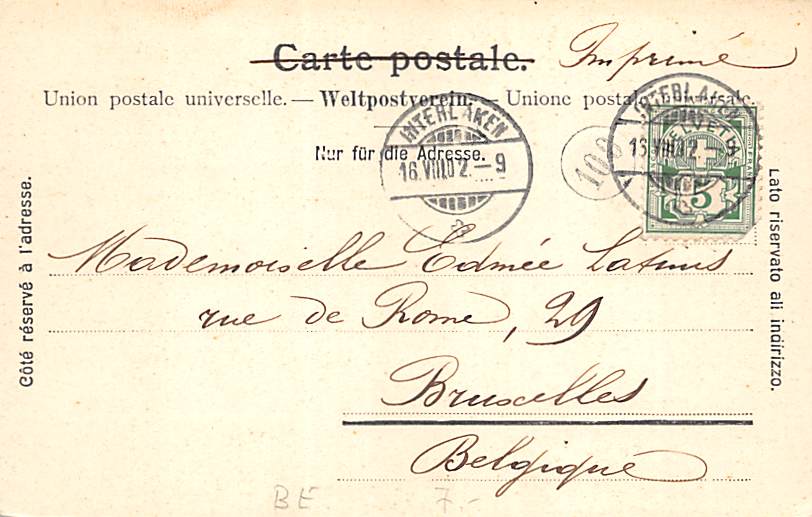 Carte postale. Imprimé
Union postale universelle. — Weltpostverein. — Unione postale universale.
Nur für die Adresse.
INTERLAKEN
16.VIII.02.–9
INTERLAKEN
16.VIII.02.–9
HELVETIA
5
108
Côté réservé à l'adresse.
Lato riservato all indirizzo.
Mademoiselle Edmée Latinis
rue de Rome, 29
Bruxelles
Belgique
BE 7.-